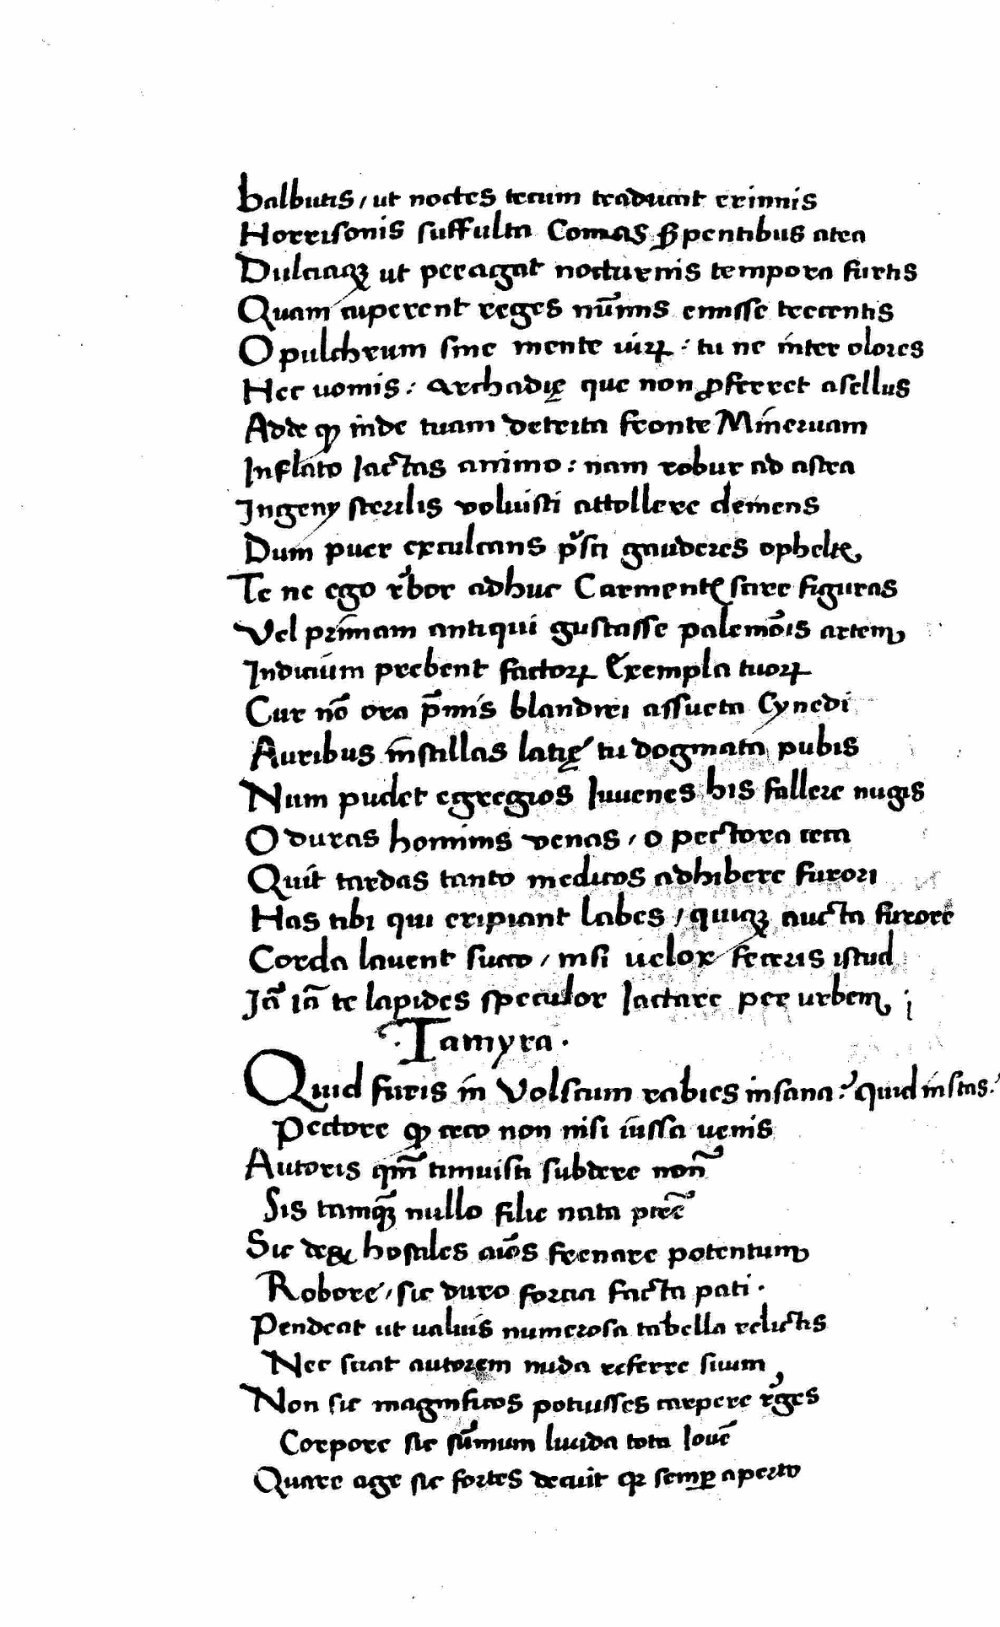 balbutis / ut noctes tecum traducat erinnis
Horrisonis suffulta Comas ꝑpentibus atra
Dulciaqꝫ ut peragat nocturnis tempora furtis
Quam cuperent reges nūmis emisse trecentis
O pulchrum sine mente uirꝝ : tu ne inter olores
Hec uomis : archadię que non ꝓferret asellus
Adde ꝙ inde tuam detrita fronte Mineruam
Inflato Iactas animo : nam robur ad astra
Ingenij sterilis voluisti attollere demens
Dum puer exculcans p̄sti gauderes ophelte
Te ne ego r̄bor adhuc Carmentę scire figuras
Vel primam antiqui gustasse palemōis artem
Indicium prebent factorꝝ Exempla tuorꝝ
Cur nō ora p̄mis blandiri assueta Cynedi
Auribus instillas latię tu dogmata pubis
Num pudet egregios Iuuenes his fallere nugis
O duras hominis venas / o pectora ceca
Quit tardas tanto medicos adhibere furori
Has tibi qui eripiant labes / quiqꝫ aucta furore
Corda lauent succo / nisi uelox feceris istud
Iā iā te lapides speculor Iactare per urbem ;
· Tamyra ·
Quid furis in Volscum rabies insana? quid instas?
Pectore ꝙ ceco non nisi iussa uenis
Autoris qm̄ timuisti subdere nom̄
Sis tamqꝫ nullo filie nata pr̄e
Sic deꝫ hostiles aīos frenare potentum
Robore / sic duro forcia facta pati ·
Pendeat ut ualuis numerosa tabella relictis
Nec sciat autorem nuda referre suum
Non sic magnificos potuisses carpere r̄ges
Corpore sic sūmum lucida tota Iouē
Quare age sic fortes decuit qꝛ semꝑ aperto